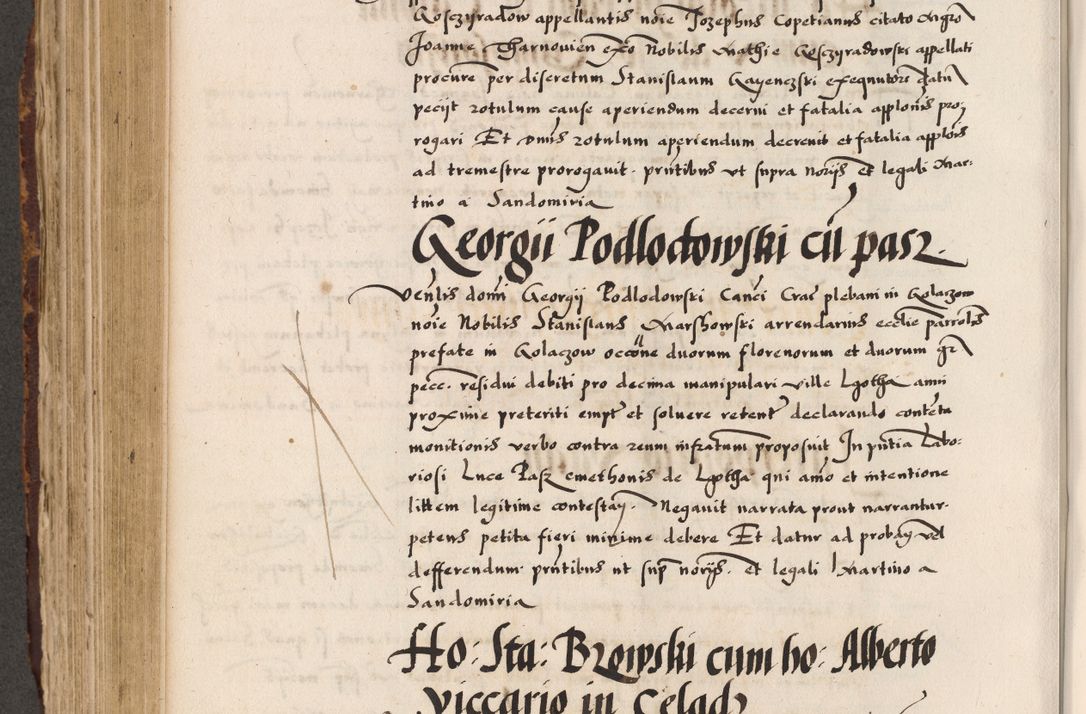 Kosczyradow appellantis noie Jozephus Copetianus citato mgro
Joanne Tharnovien exo Nobilis Mathie Kosczyradowski appellati
procure per discretum Stanislaum Gayenczski exequutore datu
pecijt rotulum cause aperiendum decerni et fatalia applonis pro=
rogari Et dnus rotulum aperiendum decrevit et fatalia applois
ad tremestre prorogavit. pntibus ut supra norijs et legali Mar=
tino a Sandomiria
Georgii Podlodowski cu pasz
Venlis domi Georgij Podlodowski Canci Crac plebani in Kolaczow
noie Nobilis Stanislaus Marshowski arrendarius ecclie parrolis
prefate in Kolaczow occone duorum florenorum et duorum gr
pecc. residui debiti pro decima manipulari ville Lgotha anni
proxime preteriti empt et solvere retent declarando contenta
monitionis verbo contra reum infratum proposuit In pntia Labo=
riosi Luce Pasz cmethonis de Lgotha qui amo et intentione
littem legitime contestan. Negavit narrata prout narrantur.
petens petita fieri minime debere Et datur ad proban vel
defferendum. pntibus ut sup norijs. et legali Martino a
Sandomiria
Ho: Sta: Bzowski cum ho: Alberto
viccario in Celadz